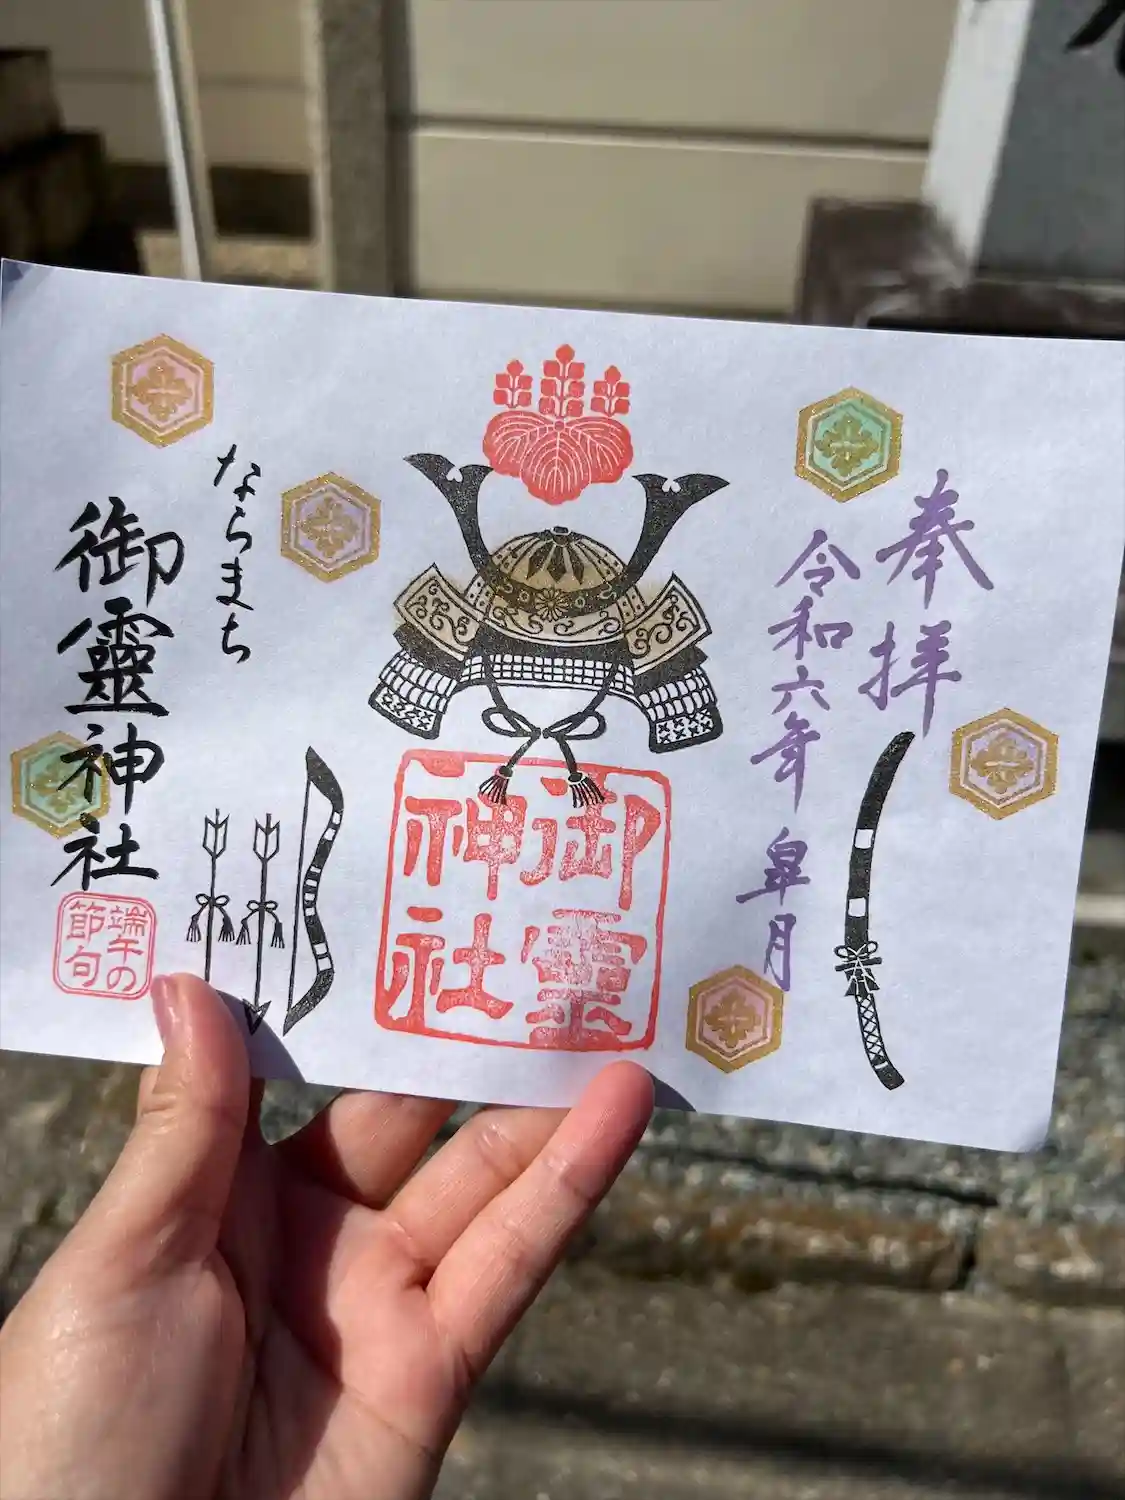 奉拝
令和六年 皐月
御霊
神社
ならまち
御靈神社
端午の
節句